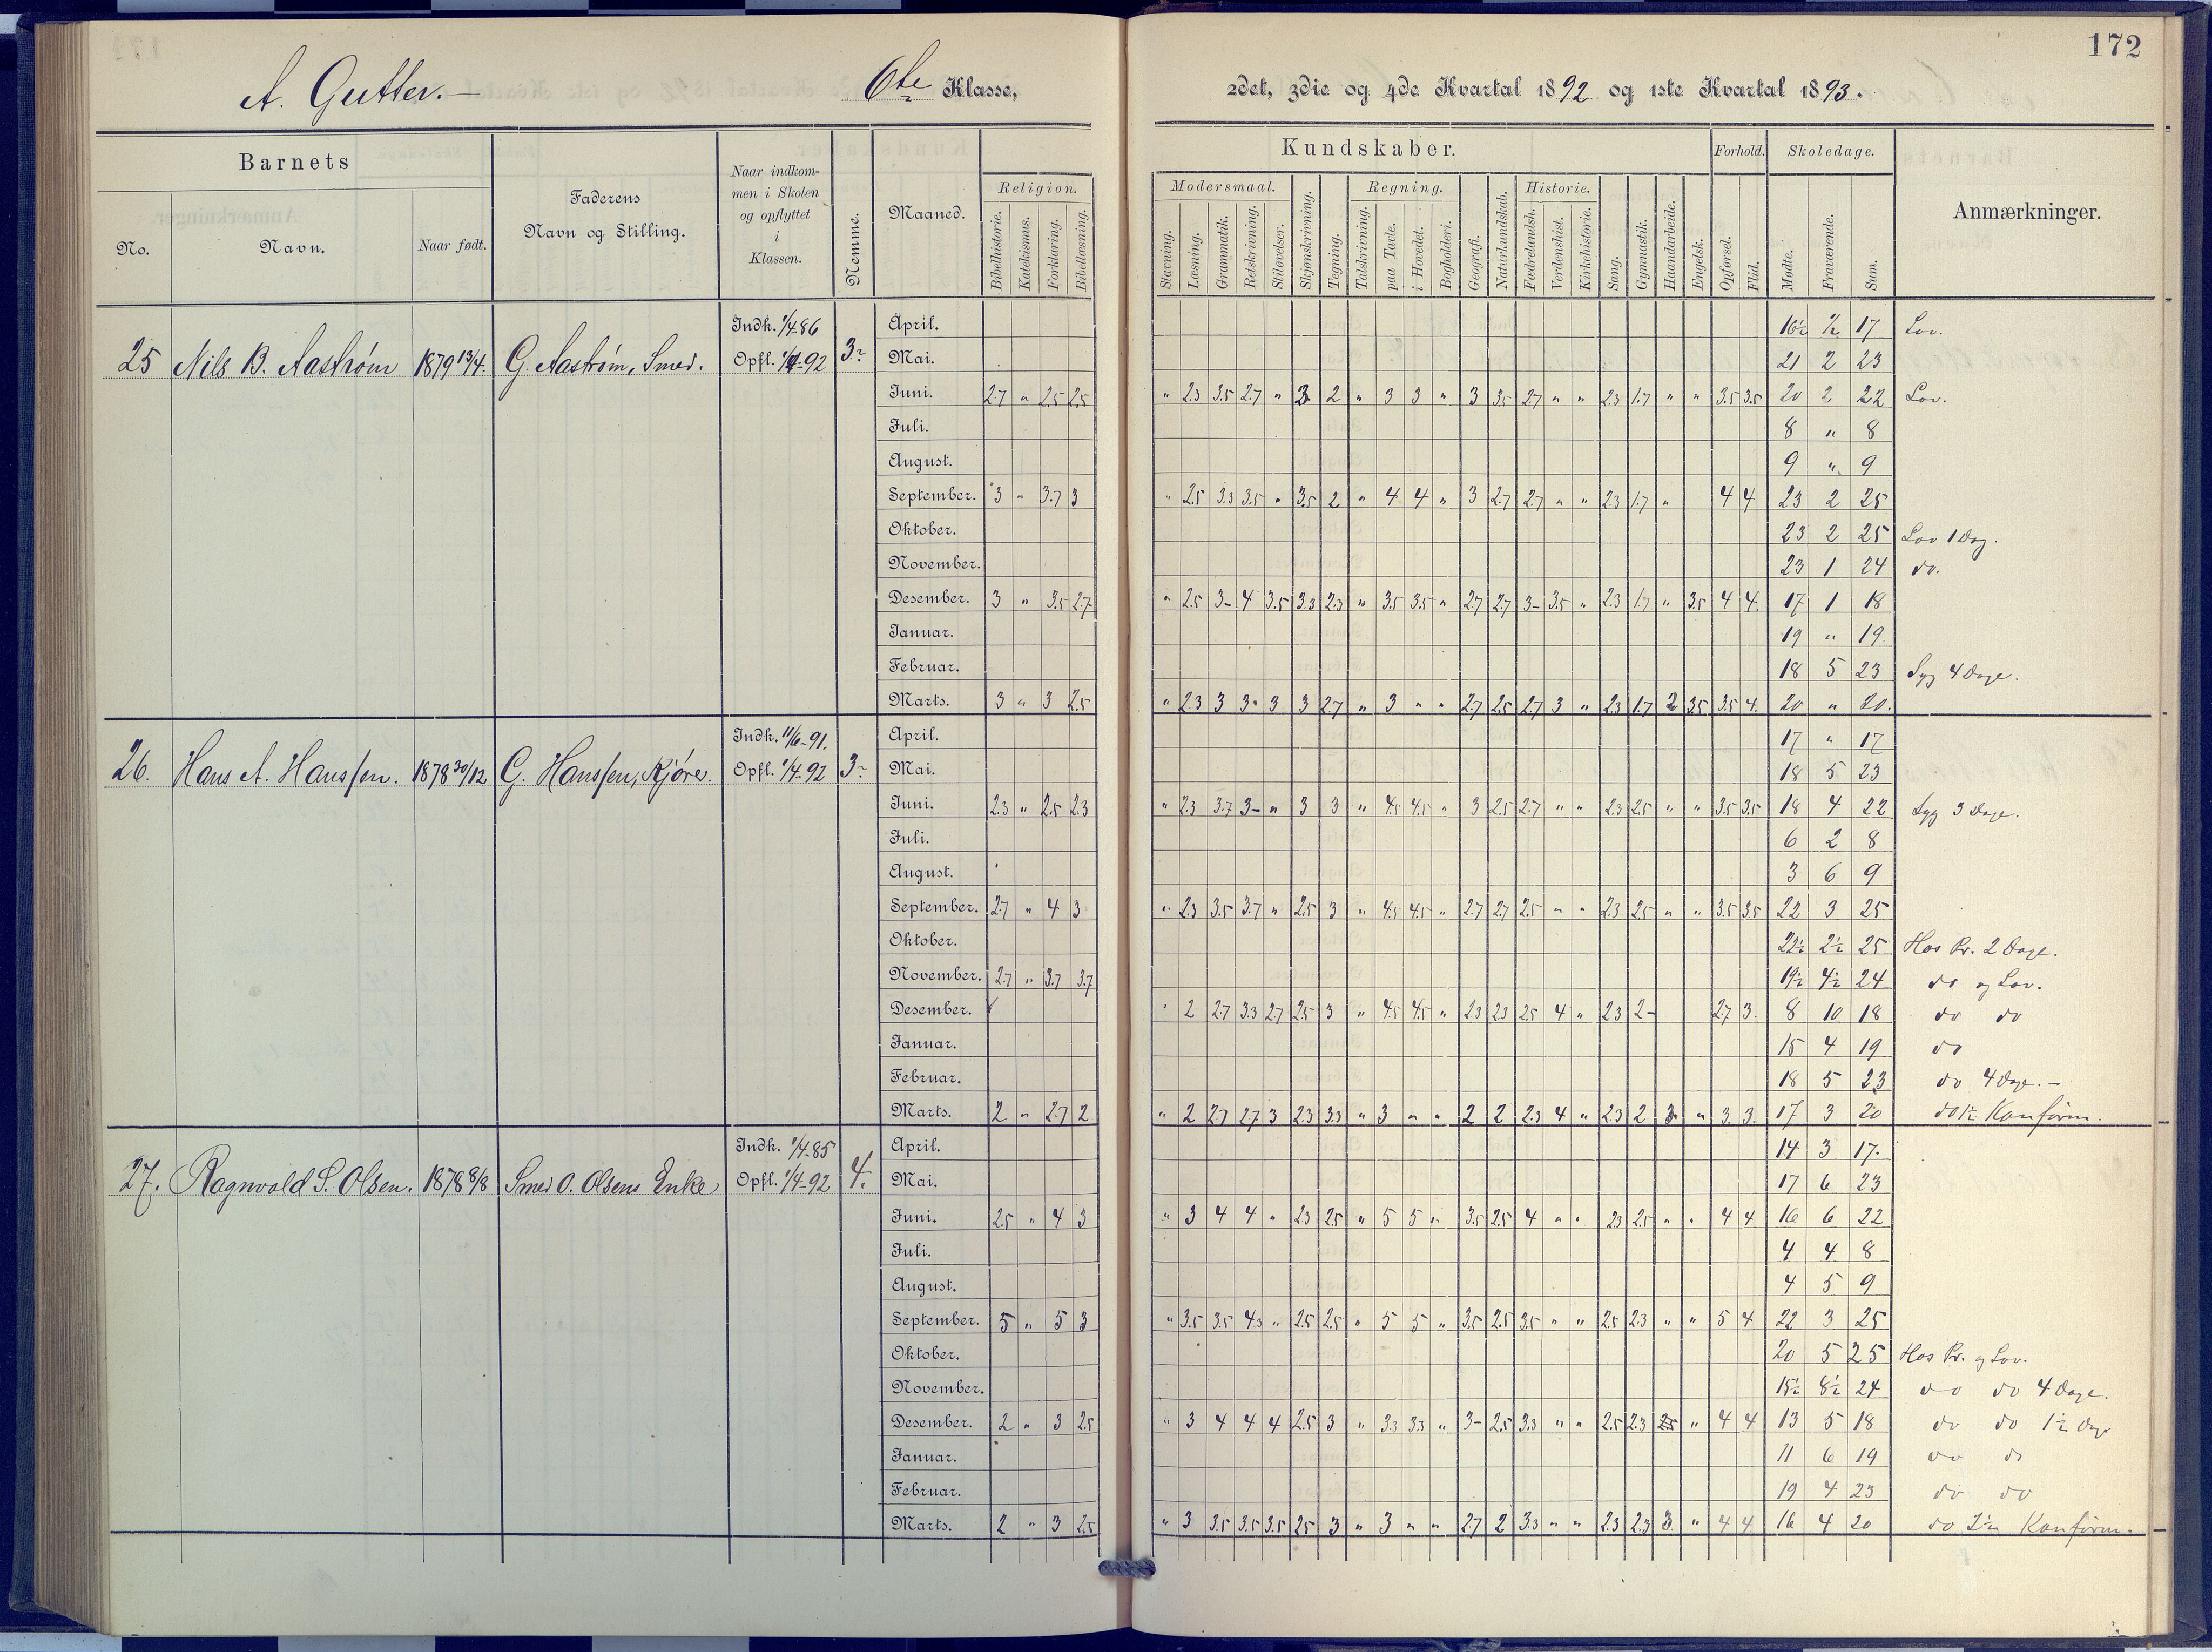 172
A. Gutter.
6te Klasse,
2det, 3die og 4de Kvartal 1892 og 1ste Kvartal 1893.
Barnets
Faderens Navn og Stilling.
Naar indkommen i Skolen og opflyttet i Klassen.
Nemme.
Maaned.
Kundskaber.
Forhold.
Skoledage.
Anmærkninger.
No.
Navn.
Naar født.
Religion.
Modersmaal.
Regning.
Historie.
Bibelhistorie. Katekismus. Forklaring. Bibellæsning. Stavning. Læsning. Grammatik. Retskrivning. Stiløvelser. Skjønskrivning. Tegning. Talskrivning. paa Tavle. i Hovedet. Bogholderi. Geografi. Naturkundskab. Fædrelandsh. Verdenshist. Kirkehistorie. Sang. Gymnastik. Haandarbeide. Engelsk. Opførsel. Flid. Mødte. Fraværende. Sum.
25 Nils B. Aastrøm 1879 13/4. G. Aastrøm, Smed. Indk. 1/4-86 Opfl. 1/4-92 3-
April. 16½ ½ 17 Lov.
Mai. 21 2 23
Juni. 2.7 " 2.5 2.5 " 2.3 3.5 2.7 " 3 2 " 3 3 " 3 3.5 2.7 " " 2.3 1.7 " " 3.5 3.5 20 2 22 Lov.
Juli. 8 " 8
August. 9 " 9
September. 3 " 3.7 3 " 2.5 3.3 3.5 " 3.5 2 " 4 4 " 3 2.7 2.7 " " 2.3 1.7 " 4 4 23 2 25
Oktober. 23 2 25 Lov 1 Dag.
November. 23 1 24 do.
Desember. 3 " 3.5 2.7 " 2.5 3- 4 3.5 3.3 2.3 " 3.5 3.5 " 2.7 2.7 3- 3.5 " 2.3 1.7 " 3.5 4 4. 17 1 18
Januar. 19 " 19
Februar. 18 5 23 Syg 4 Dage.
Marts. 3 " 3 2.5 " 2.3 3 3- 3 3 2.7 " 3 " " 2.7 2.5 2.7 3 " 2.3 1.7 2 3.5 3.5 4. 20 " 20.
26. Hans A. Hanssen. 1878 30/12 G. Hanssen, Kjører. Indk. 11/6-91. Opfl. 1/4-92 3-
April. 17 " 17
Mai. 18 5 23
Juni. 2.3 " 2.5 2.3 " 2.3 3.7 3- " 3 3 " 4.5 4.5 " 3 2.5 2.7 " " 2.3 2.5 " " 3.5 3.5 18 4 22 Syg 3 Dage.
Juli. 6 2 8
August. 3 6 9
September. 2.7 " 4 3 " 2.3 3.5 3.7 " 2.5 3 " 4.5 4.5 " 2.7 2.7 2.5 " " 2.3 2.5 " " 3.5 3.5 22 3 25
Oktober. 22½ 2½ 25 Hos Pr. 2 Dage.
November. 2.7 " 3.7 3.7 19½ 4½ 24 do og Lov.
Desember. " 2 2.7 3.3 2.7 2.5 3 " 4.5 4.5 " 2.3 2.3 2.5 4 " 2.3 2- 2.7 3. 8 10 18 do do
Januar. 15 4 19 do
Februar. 18 5 23 do 4 Dage. -
Marts. 2 " 2.7 2 " 2 2.7 2.7 3 2.3 3.3 " 3 " " 2 2 2.3 4 " 2.3 2 3 " 3. 3. 17 3 20 do 1½ Konfirm.
27. Ragnvald S. Olsen. 1878 8/8 Smed O. Olsens Enke Indk. 1/4-85 Opfl. 1/4-92 4.
April. 14 3 17.
Mai. 17 6 23
Juni. 2.5 " 4 3 " 3 4 4 " 2.3 2.5 " 5 5 " 3.5 2.5 4 " " 2.3 2.5 " " 4 4 16 6 22
Juli. 4 4 8
August. 4 5 9
September. 5 " 5 3 " 3.5 3.5 4.3 " 2.5 2.5 " 5 5 " 3.5 2.5 3.5 " " 2.5 2.3 " " 5 4 22 3 25
Oktober. 20 5 25 Hos Pr. og Lov.
November. 15½ 8½ 24 do do 4 Dage.
Desember. 2 " 3 2.5 " 3 4 4 4 2.5 3 " 3.3 3.3 " 3- 2.5 3.3 " " 2.5 2.3 2.5 " 4 4 13 5 18 do do 1½ Dag
Januar. 11 6 19 do do
Februar. 19 4 23 do do
Marts. 2 " 3 2.5 " 3 3.5 3.5 3.5 2.5 3 " 3 " " 2.7 2 3.3 " " 2.3 2.3 3. " 4 4. 16 4 20 do Konfirm.